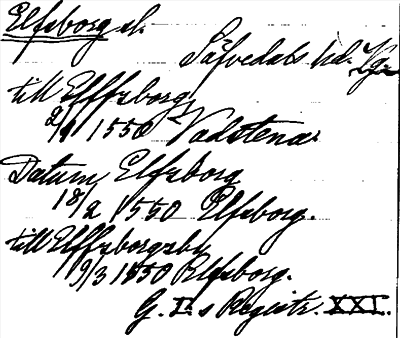 Elfsborg sl.
Säfvedals hd. Vg.
till Elffzborg
2/1 1550 Vadstena.
Datum Elfzborg
18/2 1550 Elfsborg.
till Elffzborgzby
9/3 1550 Elfsborg.
G. I.s Registr. XXI.